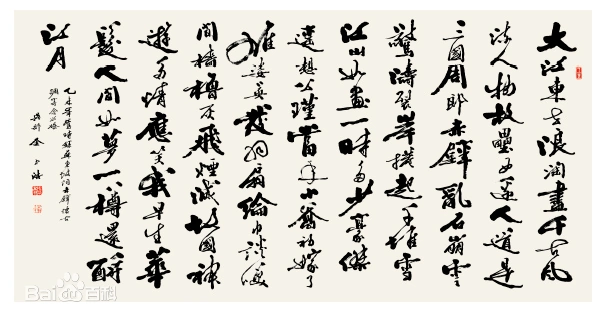 大江東去浪淘盡千古風
流人物故壘西邊人道是
三國周郎赤壁亂石崩雲
驚濤裂岸捲起千堆雪
江山如畫一時多少豪傑
遙想公瑾當年小喬初嫁了
雄姿英發羽扇綸巾談笑
間檣櫓灰飛煙滅故國神
遊多情應笑我早生華
髮人間如夢一樽還酹
江月
蘇東坡詞赤壁懷古
Bai百科